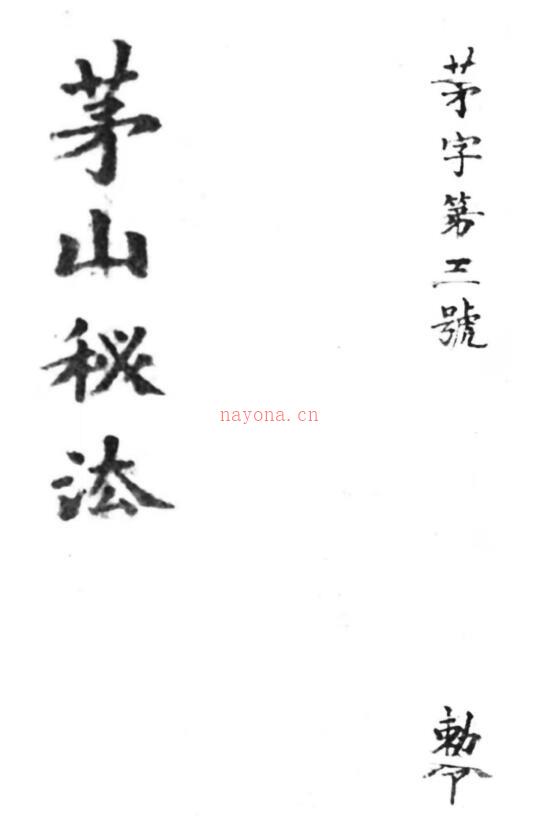 茅字第三號
勅令
茅山秘法
nayona.cn